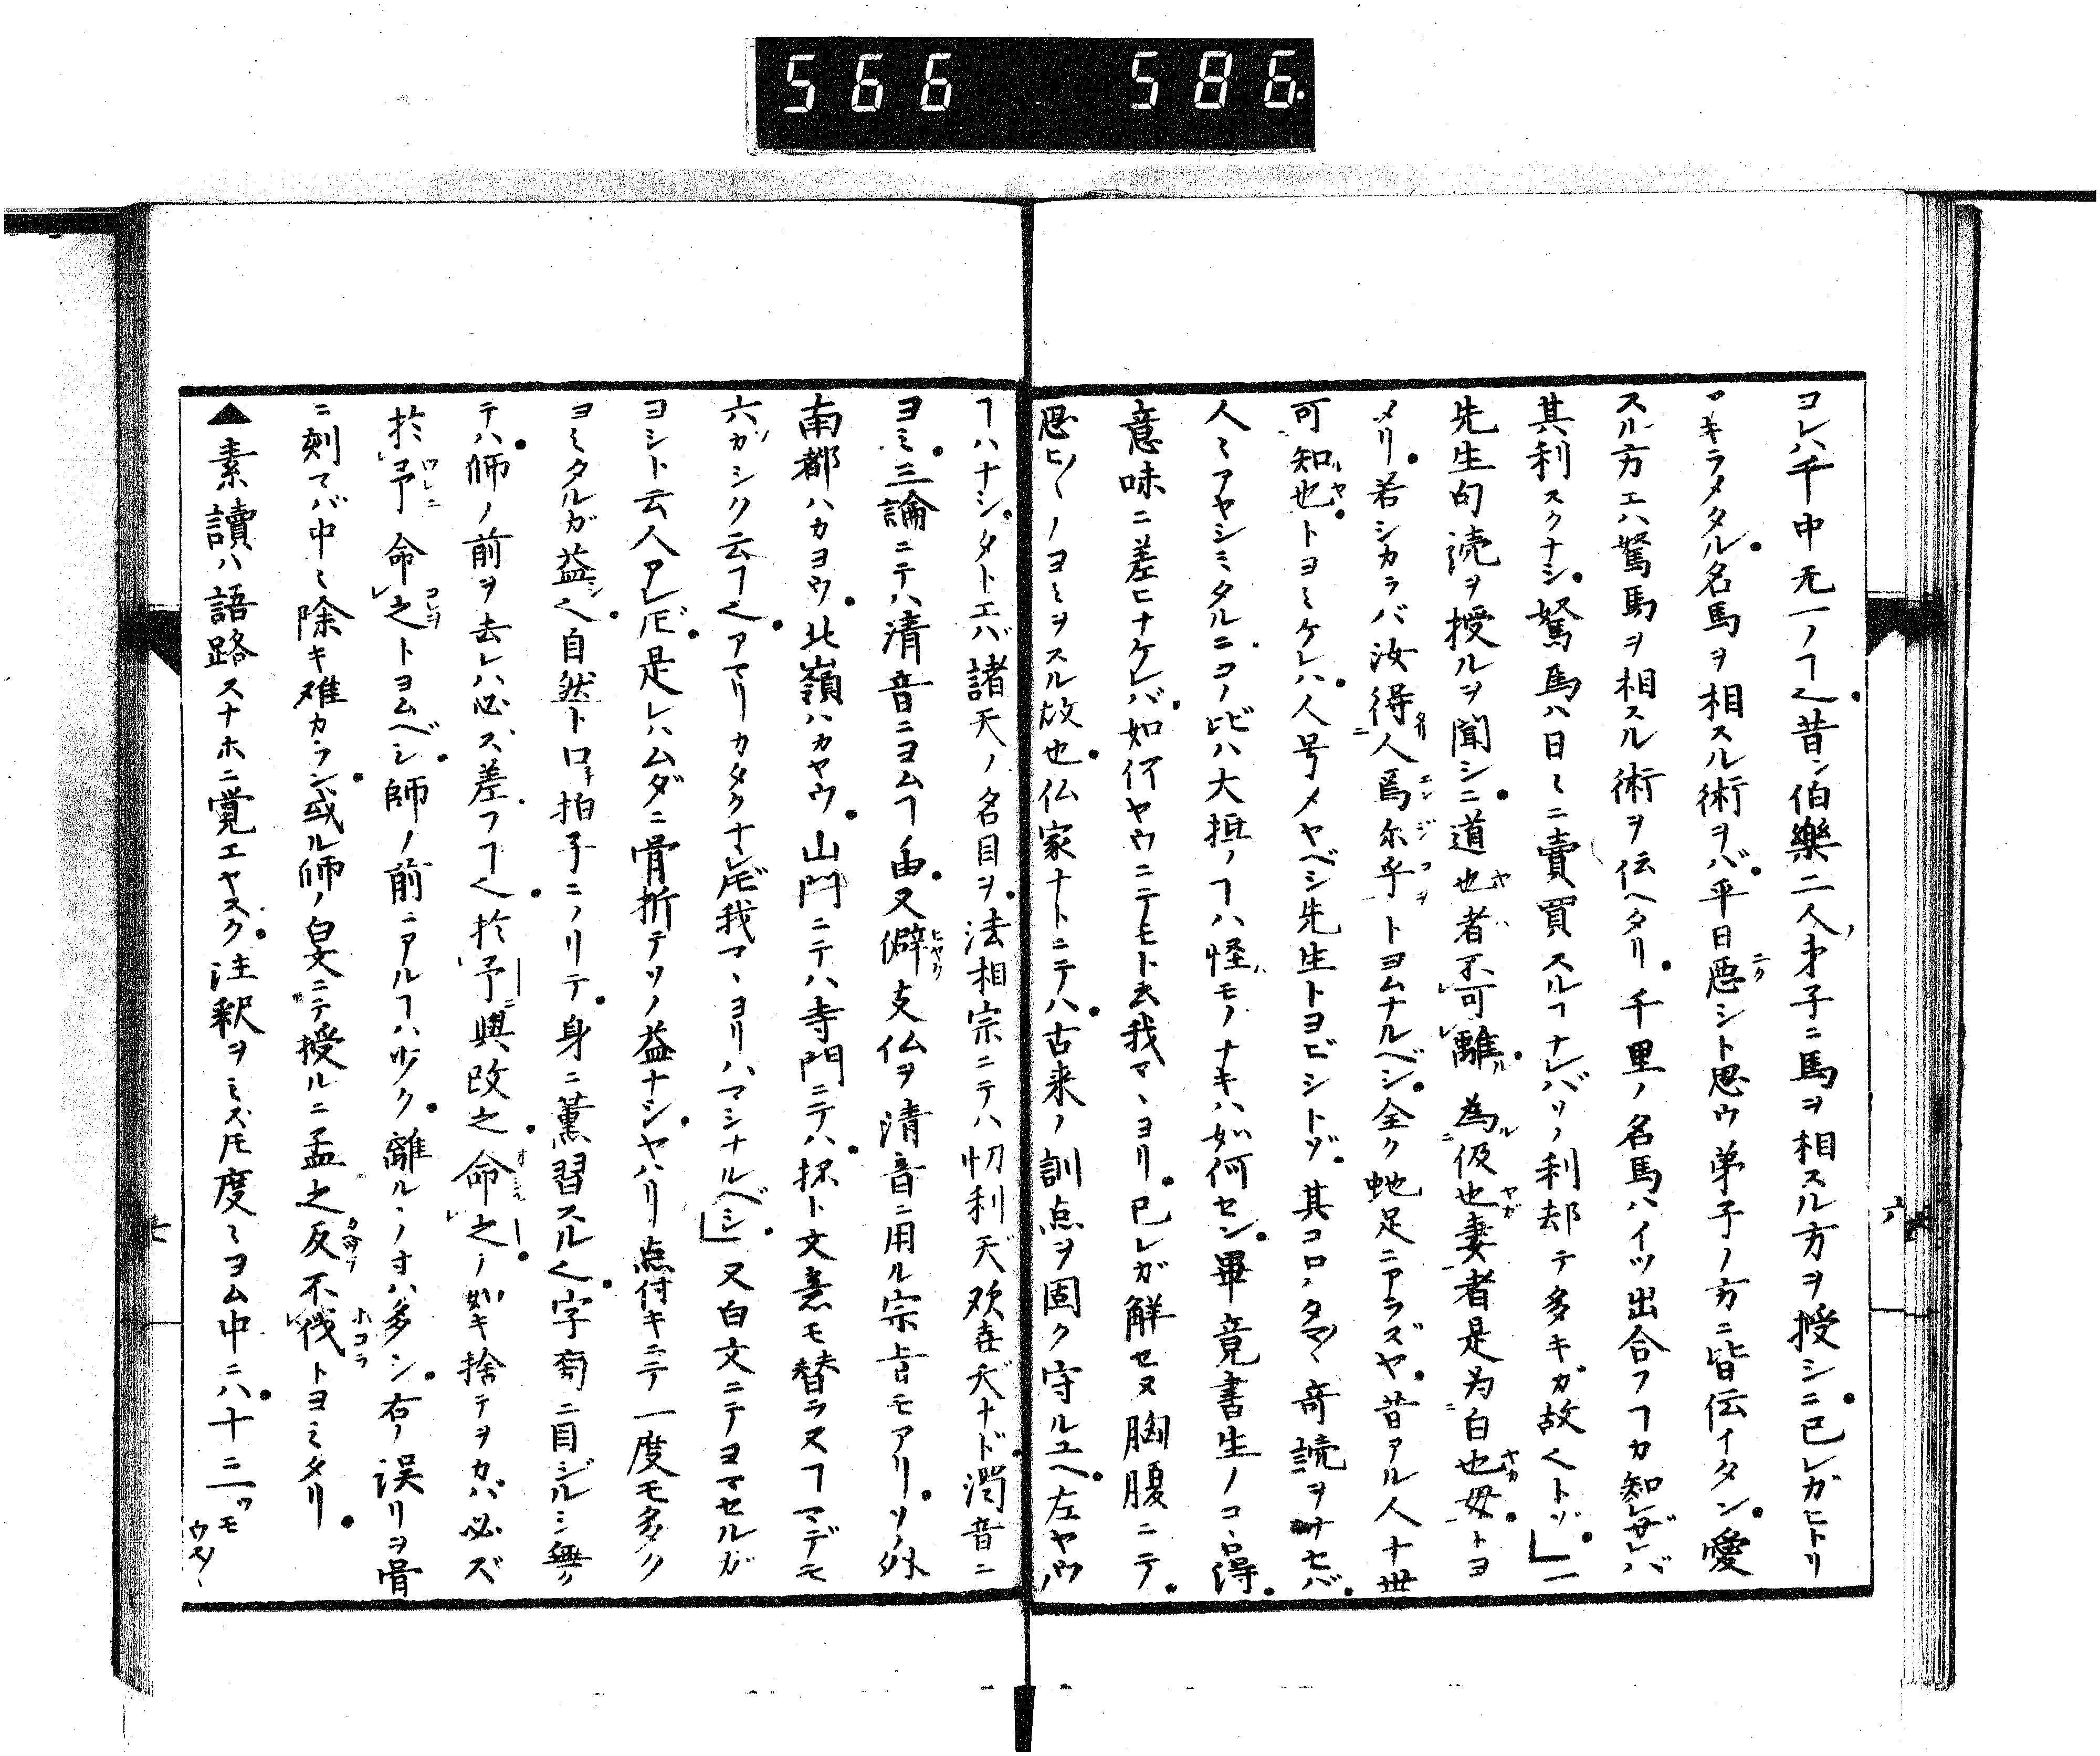 566 586.
コレハ千中无一ノヿ也昔シ伯樂二人ノ弟子ニ馬ヲ相スル方ヲ授シニ已レガヒトリ
アキラメタル名馬ヲ相スル術ヲバ平日惡シト思ウ弟子ノ方ニ皆伝イタシ愛
スル方エハ駑馬ヲ相スル術ヲ伝ヘタリ千里ノ名馬ハイツ出合フヿカ知レザレバ
其利スクナシ駑馬ハ日々ニ賣買スルヿナレバソノ利却テ多キガ故也トゾ」一
先生句読ヲ授ルヲ聞シニ道也者不可離為仮也妻者是为白也母トヨ
メリ若シカラバ汝得人焉尓乎トヨムナルベシ全ク虵足ニアラズヤ昔アル人十丗
可知也トヨミケレハ人号メヤベシ先生トヨビシトゾ其コロノタマ〻奇読ヲナセバ
人〻アヤシミタルニコノ比ハ大抵ノヿハ怪モノナキハ如何セン畢竟書生ノコヽロ得
意味ニ差ヒナケレバ如何ヤウニテモト云我マヽヨリ已レガ解セヌ胸腹ニテ
思ヒ〱ノヨミヲスル故也仏家ナトニテハ古来ノ訓点ヲ固ク守ルユヘ左ヤウノ
六
ヿハナシタトエバ諸天ノ名目ヲ法相宗ニテハ忉利天歓喜天ナド濁音ニ
ヨミ三論ニテハ清音ニヨムヿノ由又僻支仏ヲ清音ニ用ル宗旨モアリソノ外
南都ハカヨウ北嶺ハカヤウ山門ニテハ寺門ニテハ抔ト文意モ替ラヌヿマデモ
六ガシク云ヿ也アマリカタクナレ𪜈我マヽヨリハマシナルベシ」又白文ニテヨマセルガ
ヨシト云人アレ𪜈是レハムダニ骨折テソノ益ナシヤハリ点付キニテ一度モ多ク
ヨミタルガ益也自然ト口拍子ニノリテ身ニ薫習スル也字面ニ目ジルシ無ク
テハ師ノ前ヲ去レハ必ズ差フヿ也於予與改之命之ノ如キ捨テヲカバ必ズ
於予命之トヨムベシ師ノ前ニアルヿハ少ク離ルヽノ方ハ多シ右ノ誤リヲ骨
ニ刻マバ中〻除キ难カラン或ル師ノ白文ニテ授ルニ孟之反不伐トヨミタリ
▲素讀ハ語路スナホニ覚エヤスク注釈ヲミズ𪜈度〻ヨム中ニハ十ニ一ツモウス〱
七